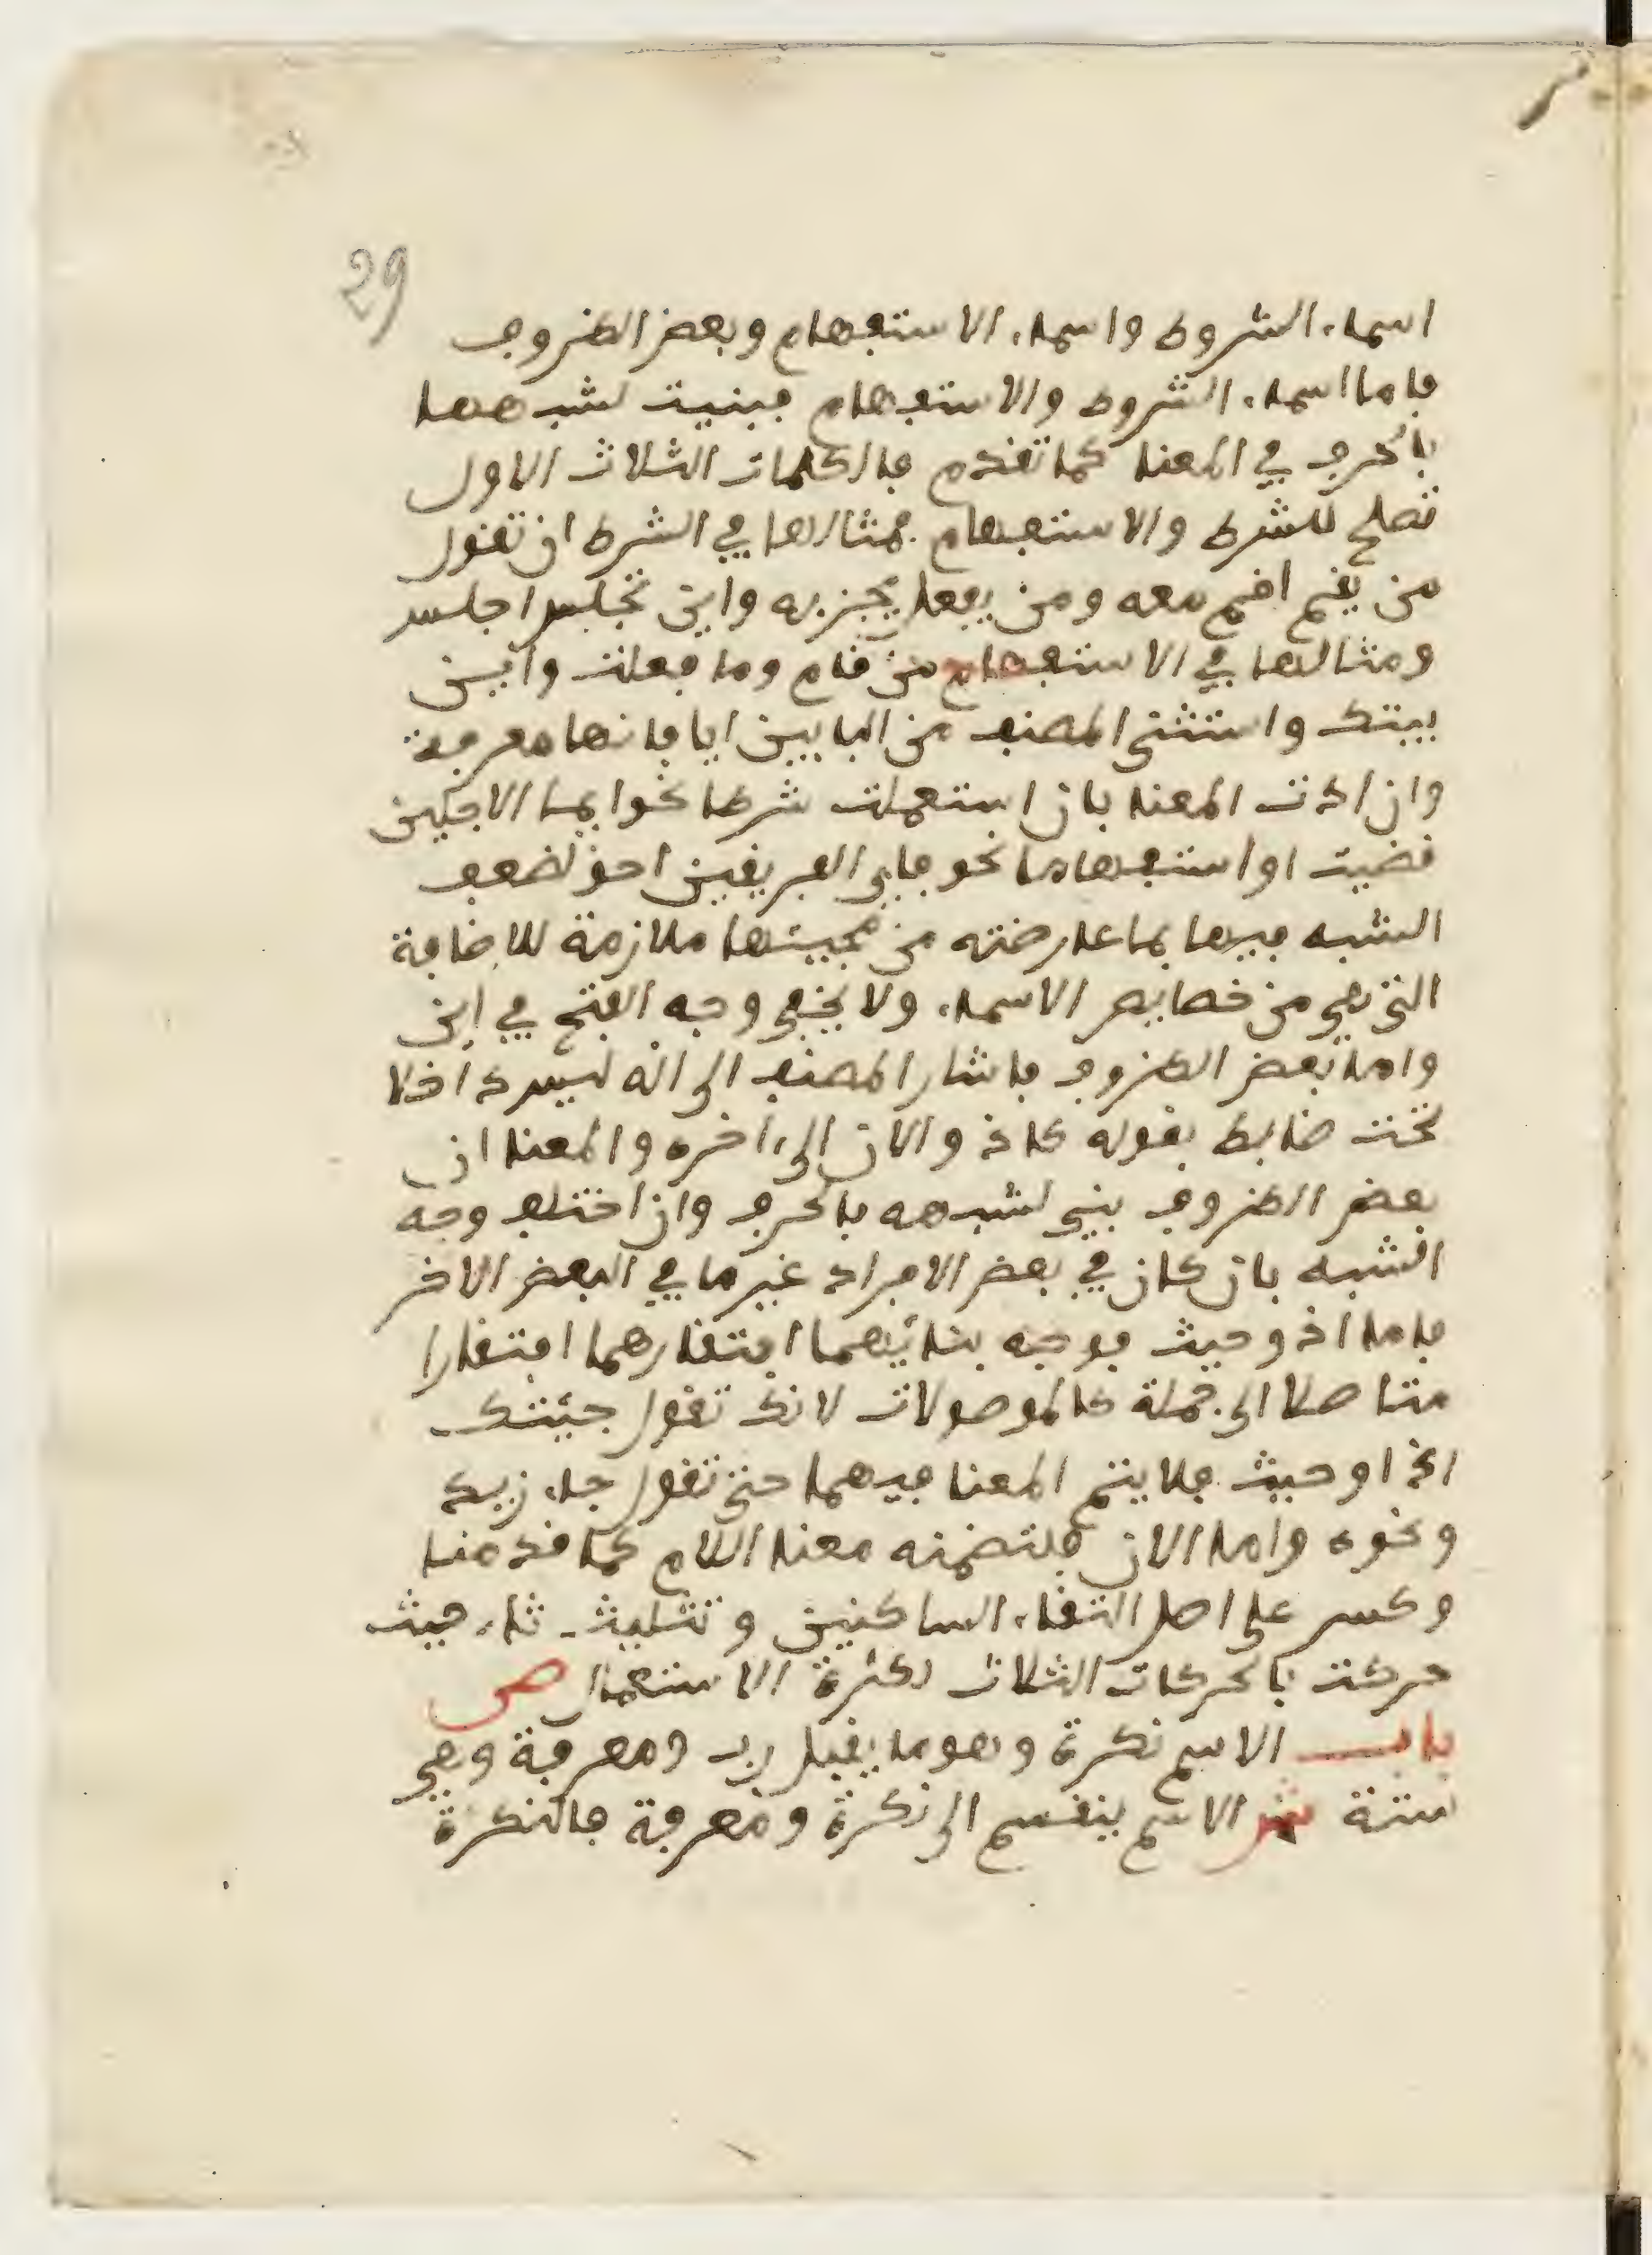 29
اسماء الشروط واسماء الاستفهام وبعض الظروف
فاما اسماء الشروط والاستفهام فبنيت لشبهها
بالحرف في المعنا كما تقدم فالكلمات الثلاث الاول
تصلح للشرط والاستفهام فمثالها في الشرط ان تقول
من يقم اقم معه ومن يفعل يجز به واين تجلس اجلس
ومثالها في الاستفهام من قام وما فعلت واين
بيتك واستثنى المصنف من البابين ايا فانها معرفة
وان ادت المعنا بان استعملت شرطا نحو ايما الاجلين
قضيت او استفهاما نحو فاي الفريقين احق لضعف
الشبه فيها بما عارضته من مجيئها ملازمة للاضافة
التي هي من خصايص الاسماء ولا يخفى وجه الفتح في اين
واما بعض الظروف فاشار المصنف الى انه ليس داخلا
تحت ضابط بقوله كاذ والان الى اخره والمعنا ان
بعض الظروف بني لشبهه بالحرف وان اختلف وجه
الشبه بان كان في بعض الافراد غير ما في البعض الاخر
فاما اذ وحيث فوجه بنائهما افتقارهما افتقارا
متاصلا الى جملة كالموصولات لانك تقول جئتك
اذ او حيث فلا يتم المعنا فيهما حتى تقول جاء زيد
ونحوه واما الان فلتضمنه معنا اللام كما قدمنا
وكسر على اصل التقاء الساكنين وتثليث ثاء حيث
حركت بالحركات الثلاث لكثرة الاستعمال ص
باب الاسم نكرة وهو ما يقبل رب ومعرفة وهي
ستة ش الاسم ينقسم الى نكرة ومعرفة فالنكرة